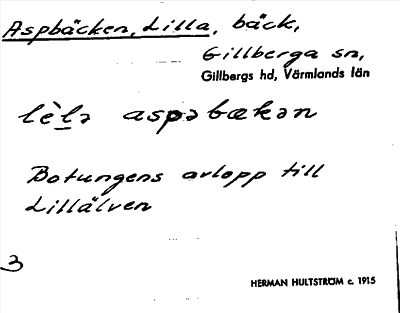 Aspbäcken, Lilla, bäck,
Gillberga sn,
Gillbergs hd, Värmlands län
lèlə aspəbækən
Botungens avlopp till
Lillälven
3
HERMAN HULTSTRÖM c. 1915